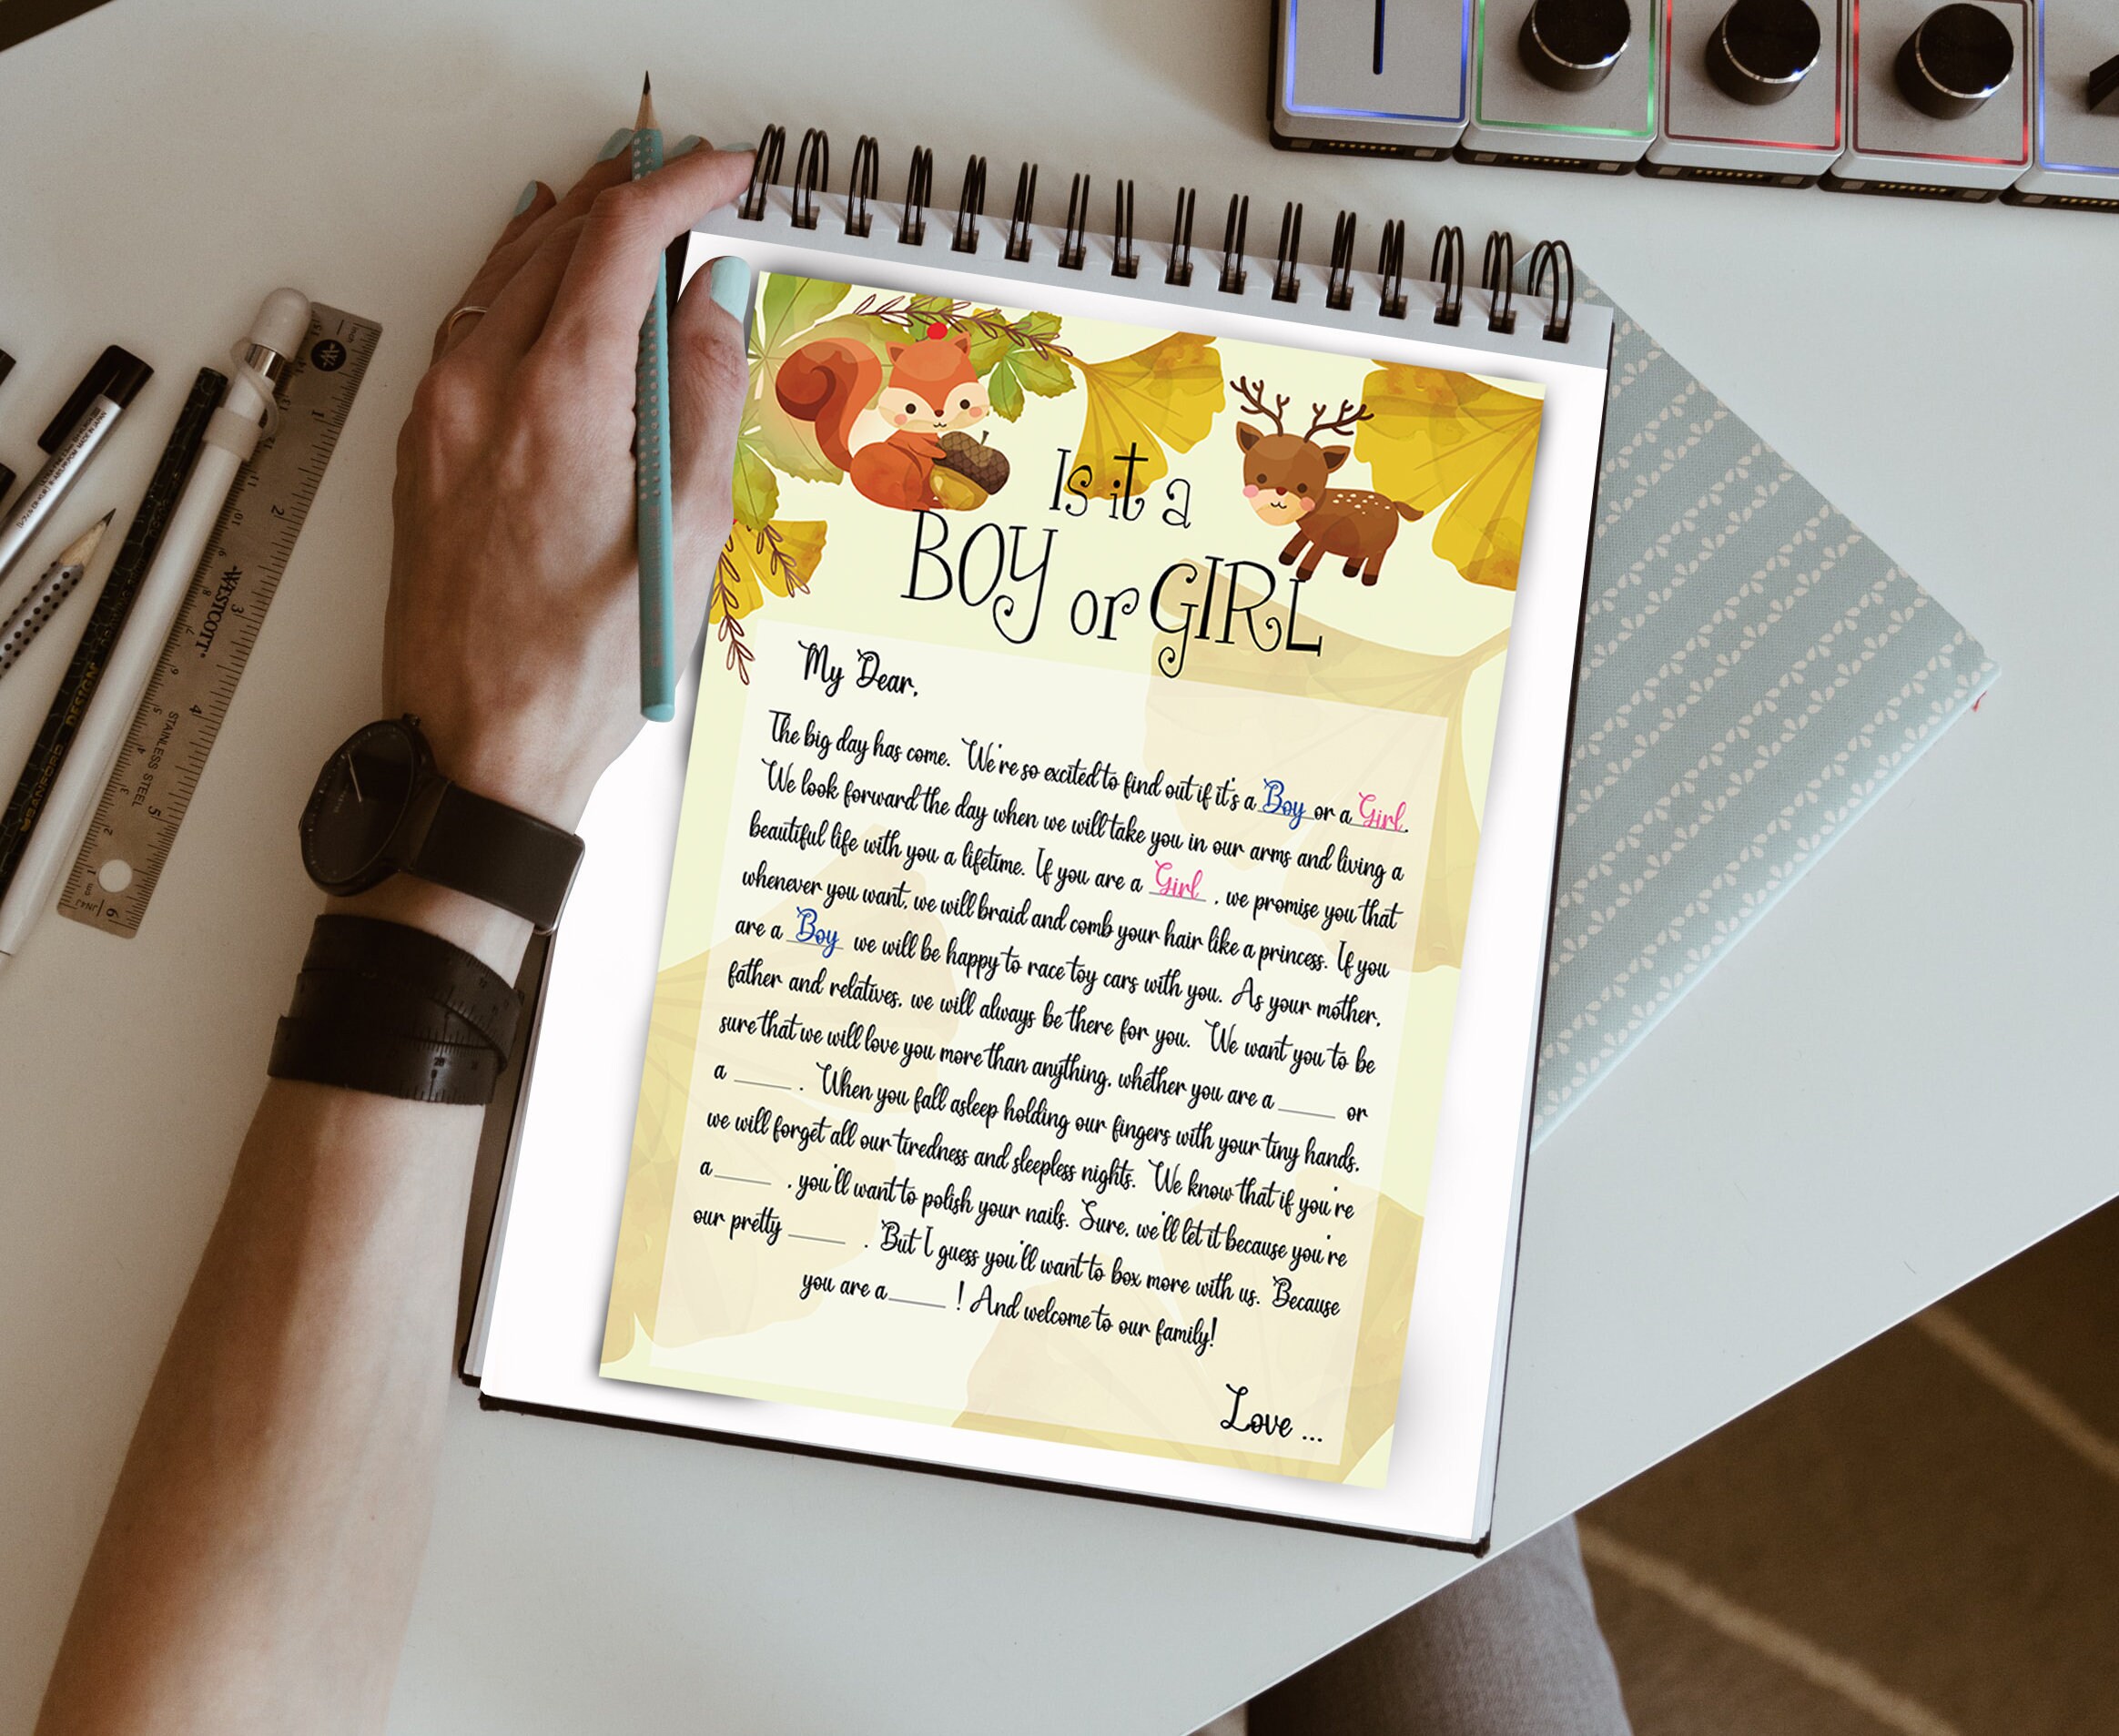 Is it a
BOY or GIRL
My Dear,
The big day has come. We're so excited to find out if it's a Boy or a Girl.
We look forward the day when we will take you in our arms and living a
beautiful life with you a lifetime. If you are a Girl , we promise you that
whenever you want, we will braid and comb your hair like a princess. If you
are a Boy we will be happy to race toy cars with you. As your mother,
father and relatives, we will always be there for you. We want you to be
sure that we will love you more than anything, whether you are a _____ or
a _____ . When you fall asleep holding our fingers with your tiny hands,
we will forget all our tiredness and sleepless nights. We know that if you're
a _____ , you'll want to polish your nails. Sure, we'll let it because you're
our pretty _____ . But I guess you'll want to box more with us. Because
you are a _____ ! And welcome to our family!
Love ...
WESTCOTT
STAINLESS STEEL